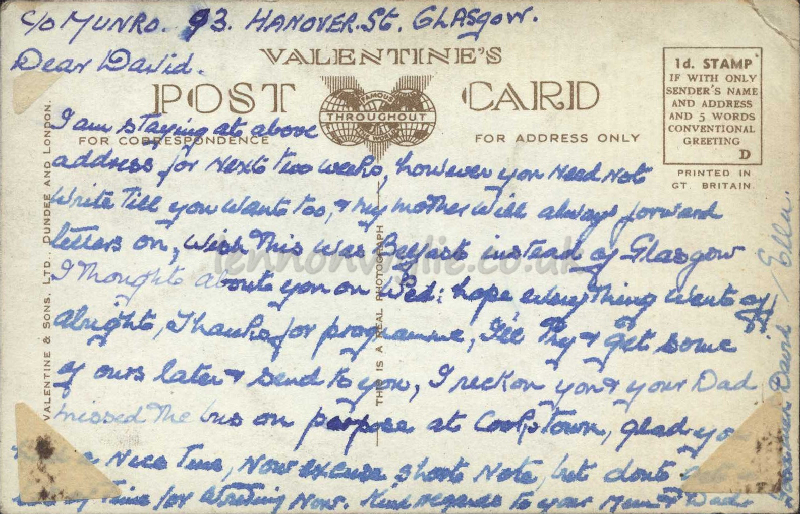 c/o Munro. 93. Hanover. St. Glasgow.
Dear David.
VALENTINE'S
POST CARD
FAMOUS
THROUGHOUT
FOR CORRESPONDENCE
FOR ADDRESS ONLY
1d. STAMP
IF WITH ONLY
SENDER'S NAME
AND ADDRESS
AND 5 WORDS
CONVENTIONAL
GREETING
D
PRINTED IN
GT. BRITAIN.
I am staying at above
address for next two weeks, however you need not
write till you want too, & my mother will always forward
letters on, wish this was Belfast instead of Glasgow
I thought about you on Wed: hope everything went off
alright, Thanks for programme, I'll try & get some
of ours later & send to you, I reckon you & your Dad
missed the bus on purpose at Cookstown, glad you
a nice time, now excuse short note, but dont
time for writing now. Kind regards to your Mum & Dad.
David / Ella.
VALENTINE & SONS, LTD., DUNDEE AND LONDON.
THIS IS A REAL PHOTOGRAPH
lennonwylie.co.uk